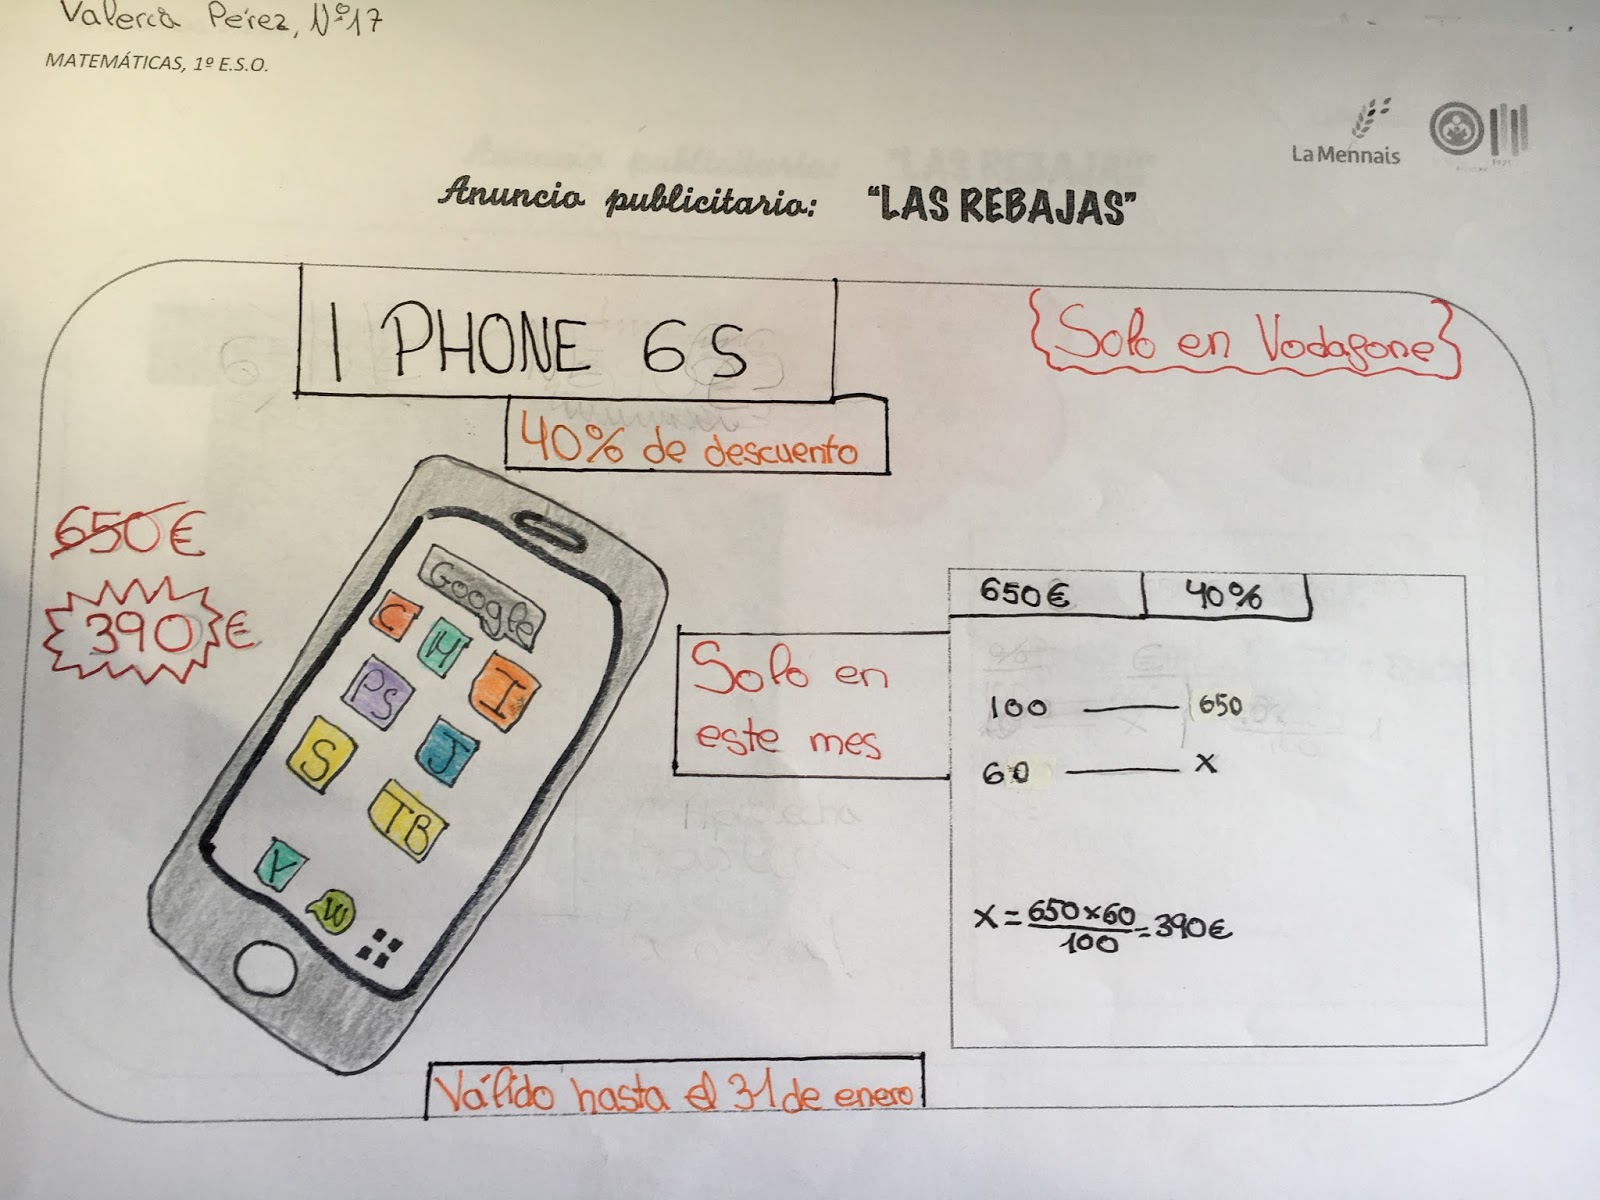 Valeria Pérez, Nº17
MATEMÁTICAS, 1º E.S.O.
La Mennais
Anuncio publicitario: "LAS REBAJAS"
I PHONE 6 S
{Solo en Vodafone}
40% de descuento
650€
390€
Google
C
M
I
PS
S
J
TB
Y
W
Solo en
este mes
650€ 40%
100 — 650
60 — x
x = 650x60/100 = 390€
Válido hasta el 31 de enero